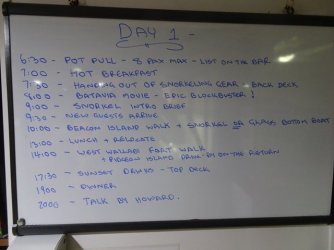 DAY 1 -
6:30 - POT PULL - 8 PAX MAX - LIST ON THE BAR
7:00 - HOT BREAKFAST
7:30 - HANDING OUT OF SNORKELING GEAR - BACK DECK
8:00 - BATAVIA MOVIE - EPIC BLOCKBUSTER !
9:00 - SNORKEL INTRO BRIEF
9:30 - NEW GUESTS ARRIVE
10:00 - BEACON ISLAND WALK + SNORKEL OR GLASS BOTTOM BOAT
13:00 - LUNCH + RELOCATE
14:00 - WEST WALLABI FORT WALK
+ PIGEON ISLAND DRIVE-BY ON THE RETURN
17:30 - SUNSET DRINKS - TOP DECK
1900 - DINNER
2000 - TALK BY HOWARD.